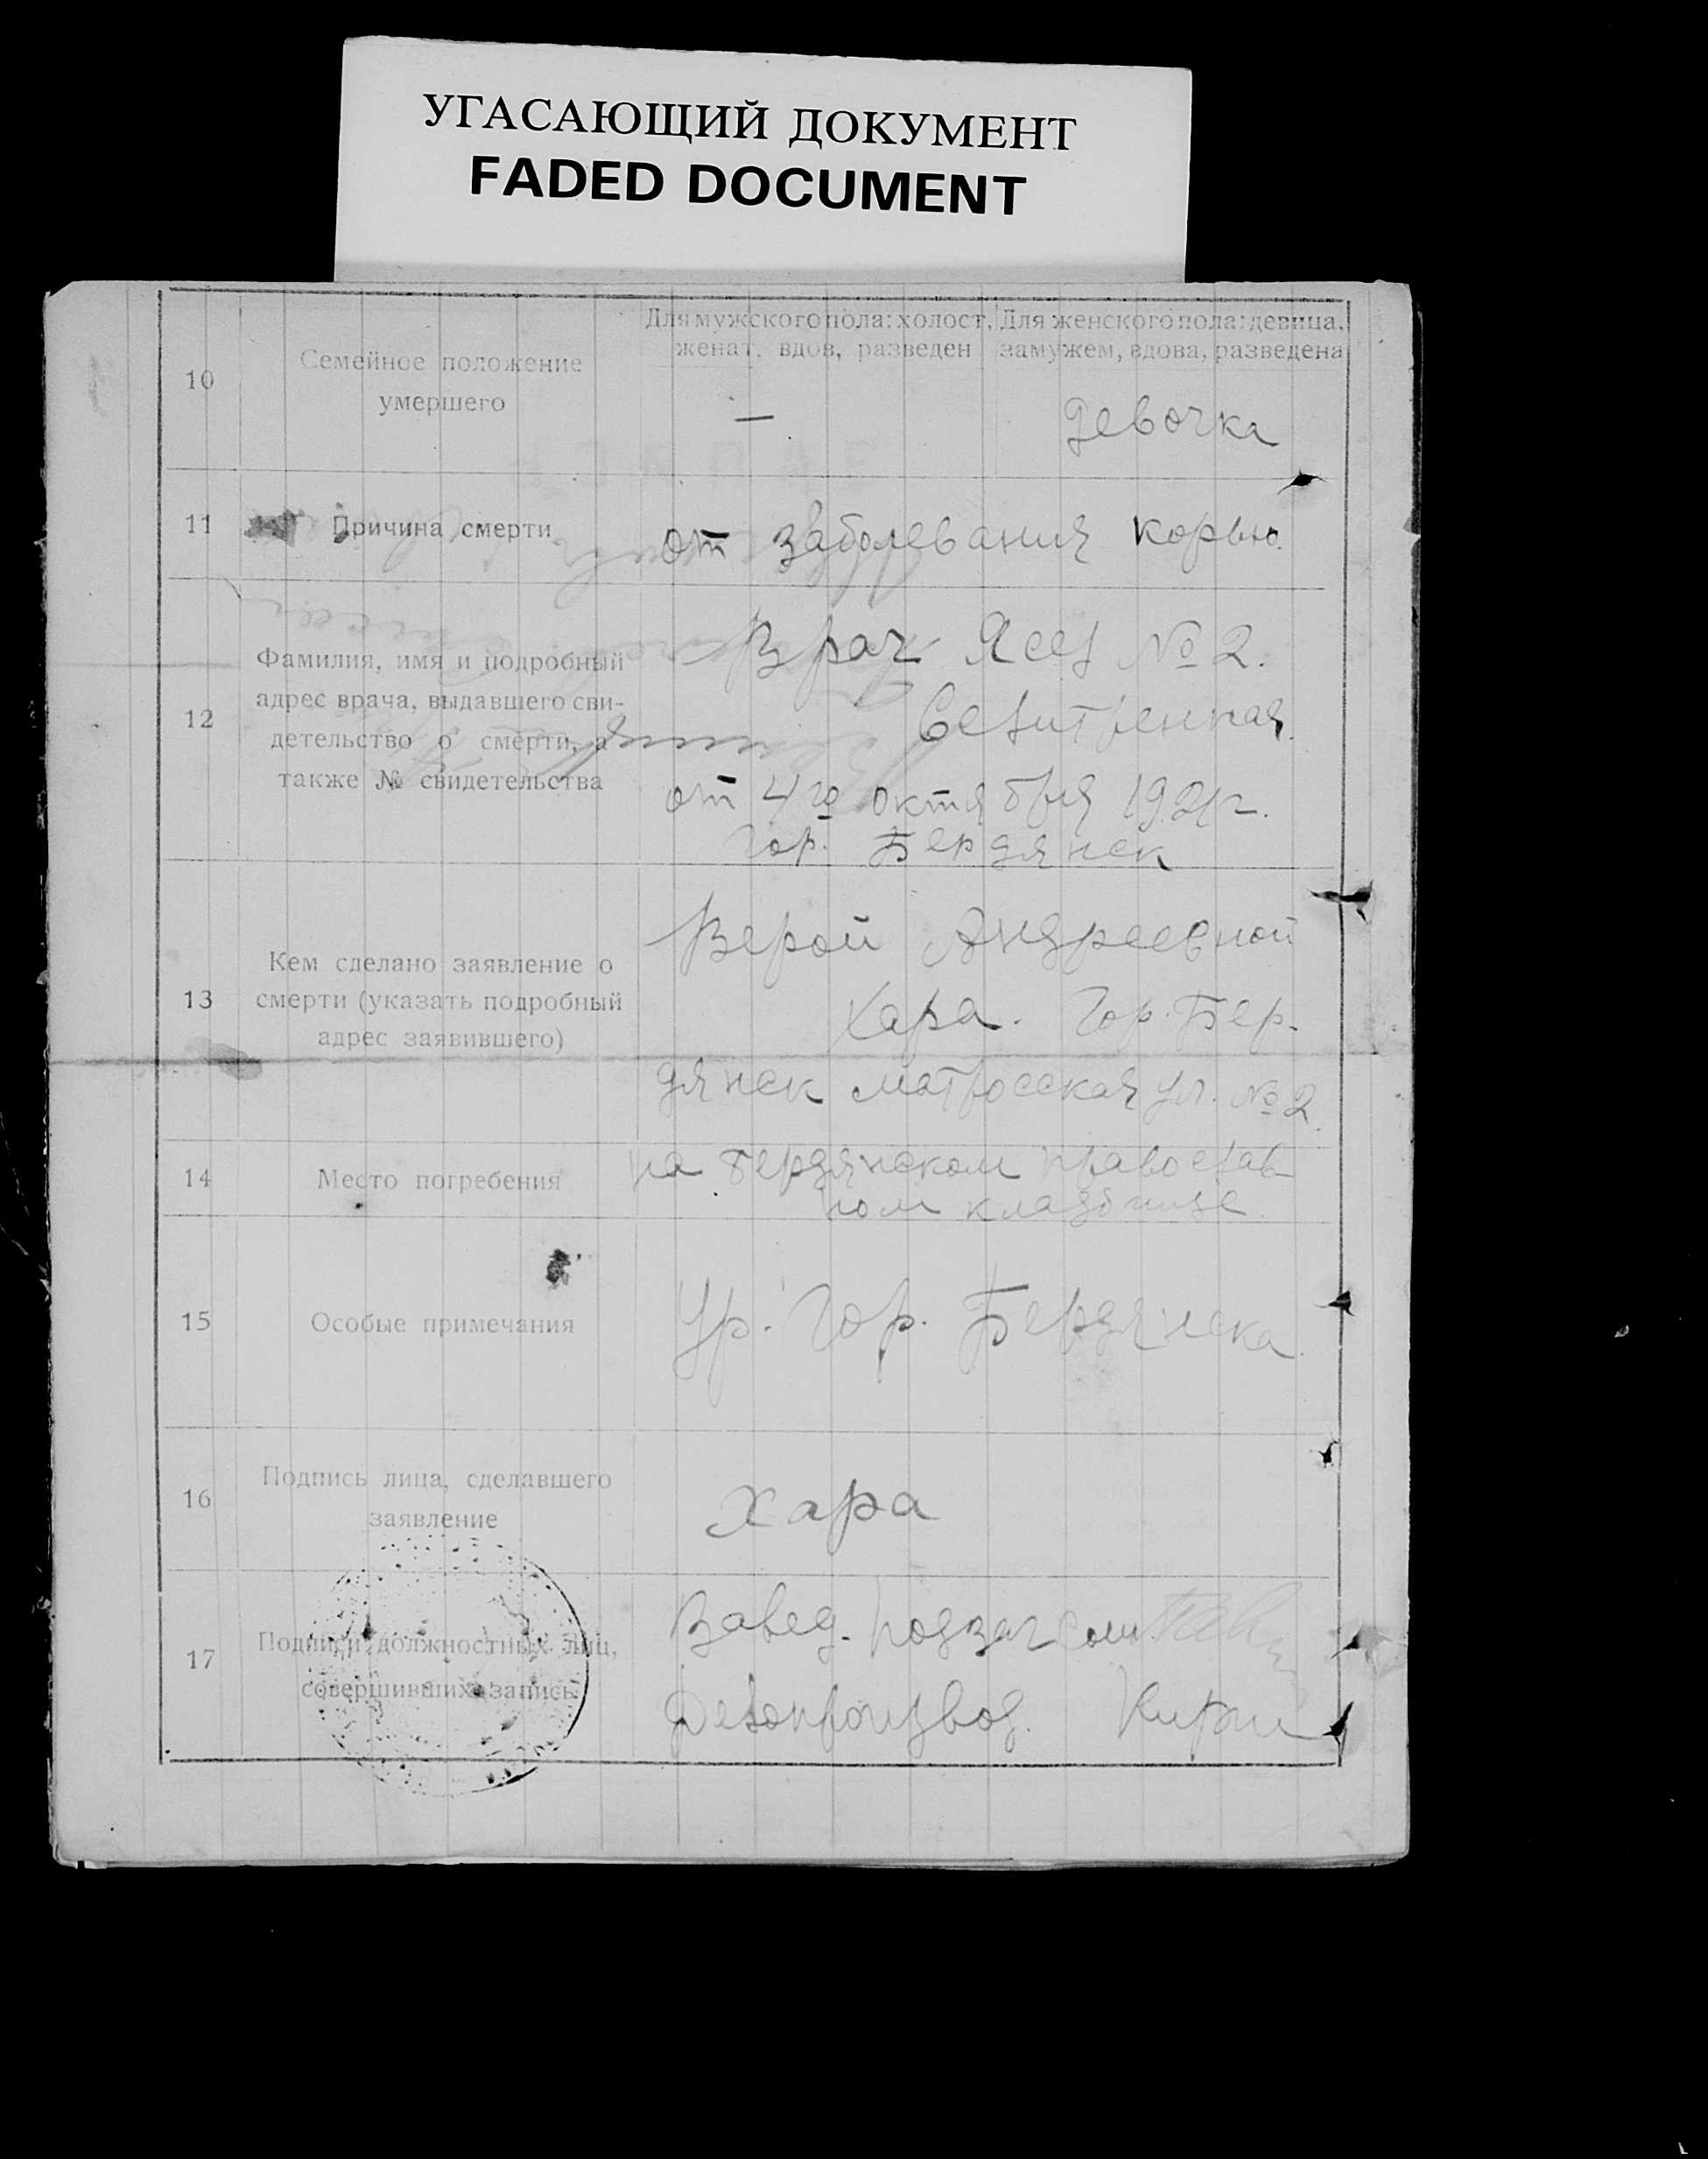 УГАСАЮЩИЙ ДОКУМЕНТ
FADED DOCUMENT
10
Семейное положение
умершего
Для мужского пола: холост,
женат, вдов, разведен
Для женского пола: девица,
замужем, вдова, разведена
—
девочка
11
Причина смерти
от заболевания корью.
12
Фамилия, имя и подробный
адрес врача, выдавшего сви-
детельство о смерти, а
также № свидетельства
Врач № 2.
от 4го октября 1921г.
Гор. Бердянск
13
Кем сделано заявление о
смерти (указать подробный
адрес заявившего)
Верой Андреевной
Хара. Гор. Бер-
дянск матросская ул. № 2.
14
Место погребения
на бердянском православ-
ном кладбище
15
Особые примечания
Гр. Гор. Бердянска.
16
Подпись лица, сделавшего
заявление
Хара
17
Подписи должностных лиц,
совершивших запись
Завед. подзагсом
Делопроизвод.